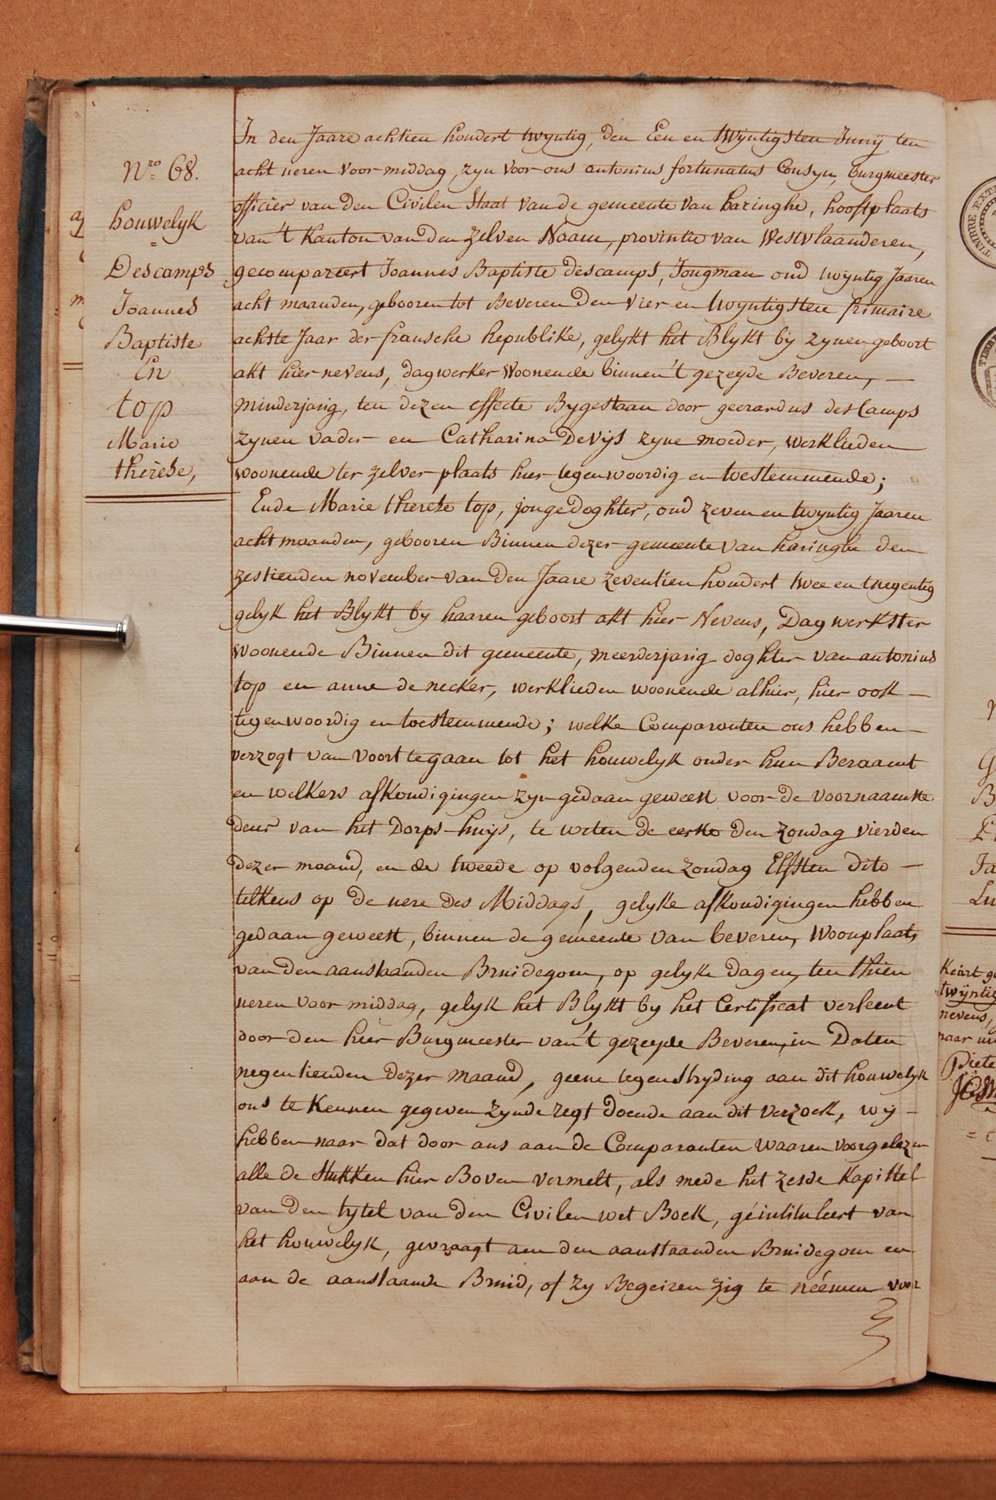 Nro 68.
houwelyk
Descamps
Joannes
Baptiste
En
top
Marie
therese,
In den Jaare achtien hondert twyntig, den Een en twyntigsten Junij ten
acht ueren voor middag, zyn voor ons antonius fortunatus Cousyn, burgmeester
officier van den Civilen Staat van de gemeente van haringhe, hooftplaats
van 't Kanton van den zelven Naam, provintie van Westvlaanderen,
gecompareert Joannes Baptiste descamps, Jongman oud twyntig Jaaren
acht maanden, gebooren tot Beveren den vier en twyntigsten frimaire
achtste Jaar der fransche Republike, gelykt het Blykt by zynen geboort
akt hier nevens, dagwerker Woonende binnen 't gezeyde Beveren, —
minderjarig, ten dezen effecte Bygestaan door geerardus descamps
zynen vader en Catharina Devijs zyne moeder, werklieden
woonende ter zelver plaats hier tegenwoordig en toestemmende;
Ende Marie therese top, jonge doghter, oud zeven en twyntig Jaaren
acht maanden, gebooren Binnen dezer gemeente van haringhe den
zestienden november van den Jaare zeventien hondert twee en tnegentig
gelyk het Blykt by haaren geboort akt hier Nevens, Dagwerkster
woonende Binnen dit gemeente, meerderjarig doghter van antonius
top en anne de necker, werklieden woonende alhier, hier ook —
tegenwoordig en toestemmende; welke Comparanten ons hebben
verzogt van voort te gaan tot het houwelyk onder hun Beraamt
en welkers afkondigingen zyn gedaan geweest voor de voornaamste
deur van het Dorps-huijs, te weten de eerste den zondag vierden
dezer maand, en de tweede op volgenden zondag Elfsten dito —
telkens op de uere des Middags, gelyke afkondigingen hebben
gedaan geweest, binnen de gemeente van beveren, Woonplaats
van den aanstaanden Bruidegom, op gelyke dagen, ten thien
ueren voor middag, gelyk het Blykt by het Certificat verleent
door den heer Burgmeester van 't gezeyde Beveren, in Daten
negentienden dezer maand, geene tegenstryding aan dit houwelyk
ons te Kennen gegeven zynde regt doende aan dit verzoek, wy —
hebben naar dat door ons aan de Comparanten waaren voorgelezen
alle de stukken hier Boven vermelt, als mede het zesde Kapittel
van den tytel van den Civilen wet Boek, géintituleert van
het houwelyk, gevraagt aen den aanstaanden Bruidegom en
aan de aanstaande Bruid, of zy Begeiren zig te néémen voor